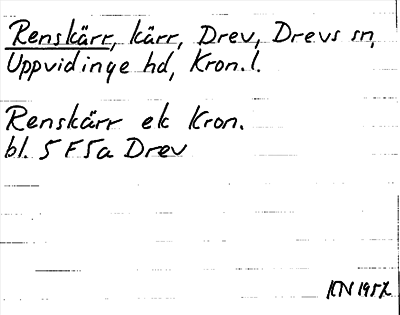 Renskärr, kärr, Drev, Drevs sn,
Uppvidinge hd, Kron. l.
Renskärr ek Kron.
bl. 5 F 5a Drev